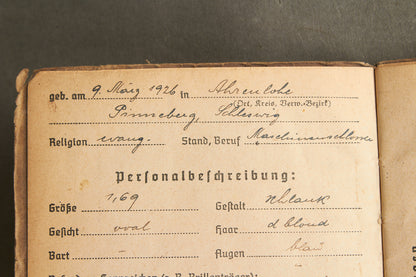 geb. am 9. März 1926 in Ahrenlohe
(Ort, Kreis, Verw.-Bezirk)
Pinneberg, Schleswig
Religion evang. Stand, Beruf Maschinenschlosser
Personalbeschreibung:
Größe 1,69 Gestalt schlank
Gesicht oval Haar d blond
Bart - Augen blau
(z. B. Brillenträger):